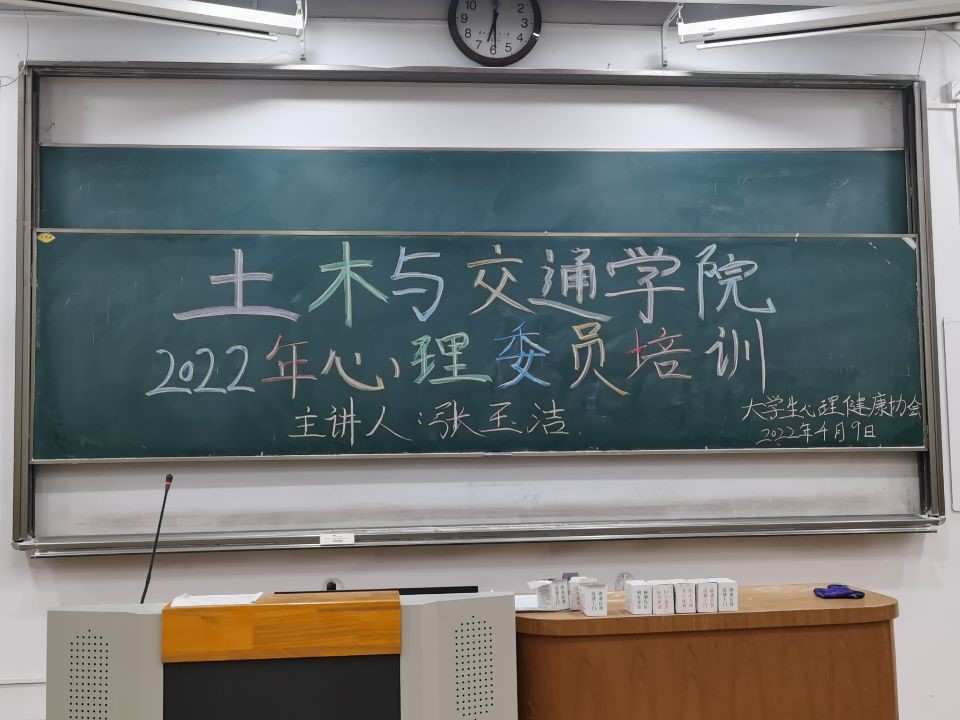 10 12 2
9 3
8 4
7 6 5
土木与交通学院
2022年心理委员培训
主讲人:张玉洁
大学生心理健康协会
2022年4月9日